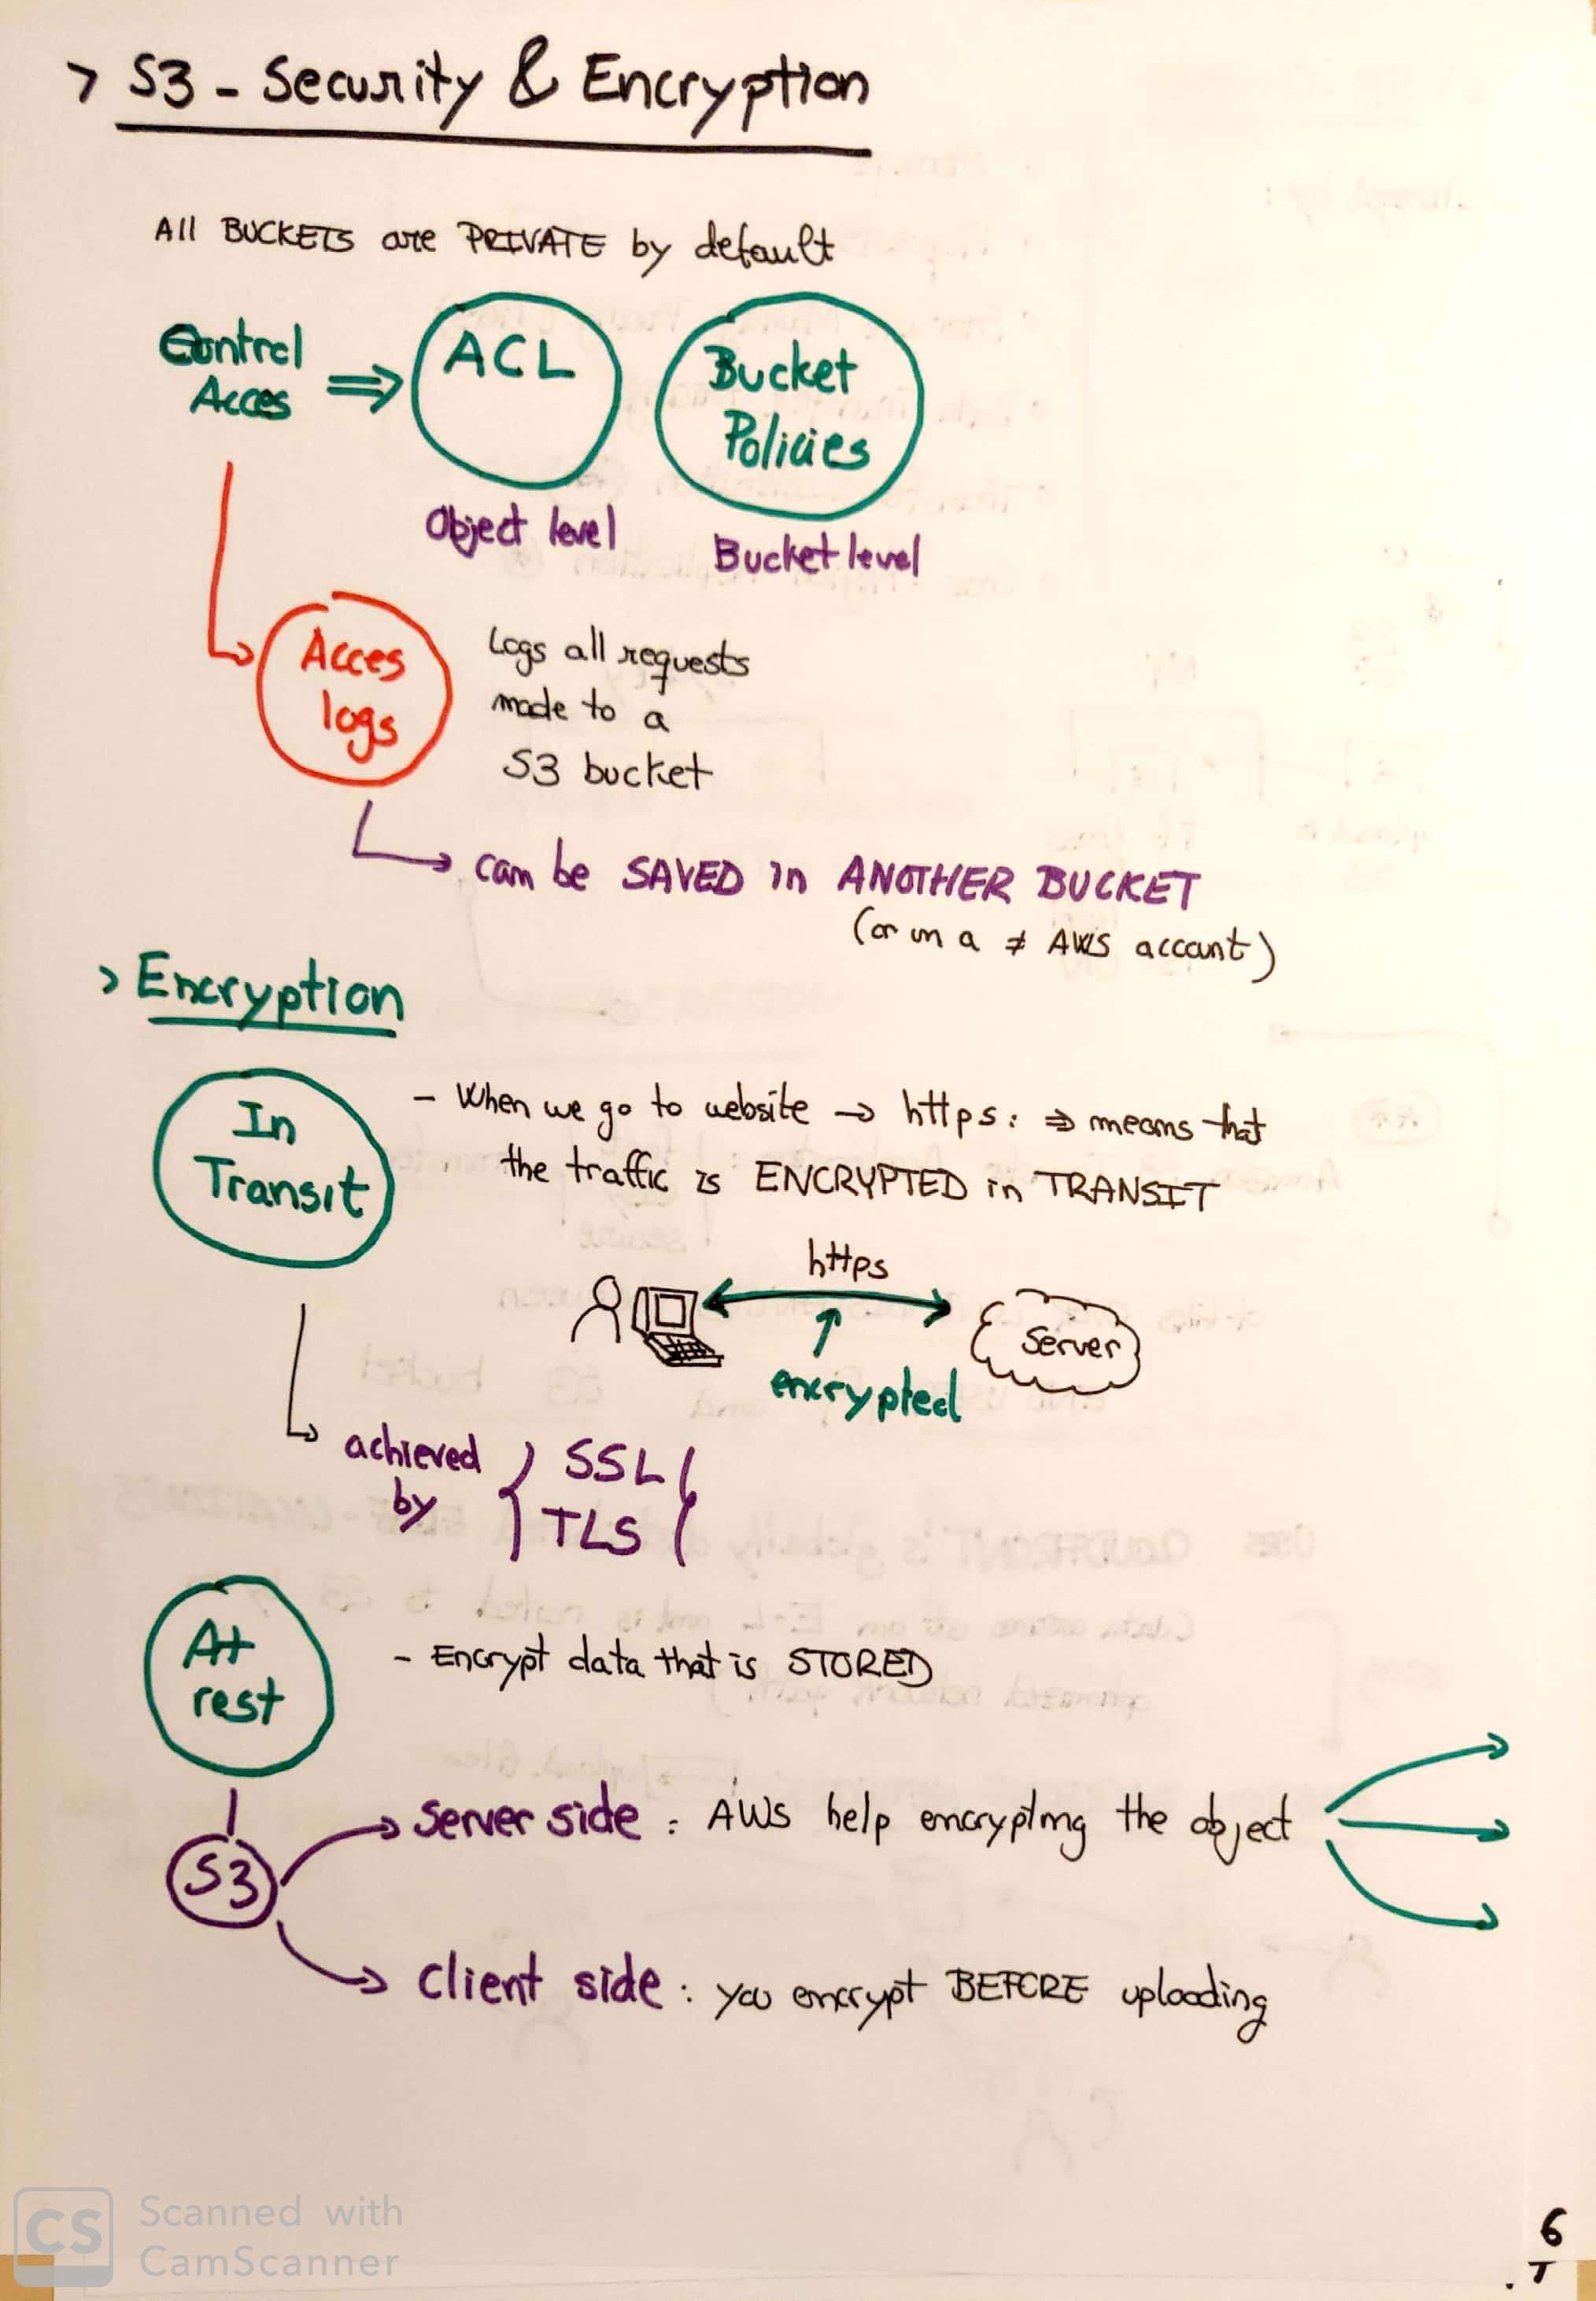 > S3 - Security & Encryption
All BUCKETS are PRIVATE by default
Control
Acces
⇒
ACL
Bucket
Policies
Object level
Bucket level
Acces
logs
Logs all requests
made to a
S3 bucket
can be SAVED in ANOTHER BUCKET
(or in a ≠ AWS account)
> Encryption
In
Transit
- When we go to website → https: ⇒ means that
the traffic is ENCRYPTED in TRANSIT
https
Server
encrypted
achieved
by
SSL
TLS
At
rest
- Encrypt data that is STORED
S3
Server side : AWS help encrypting the object
Client side : you encrypt BEFORE uploading
CS
Scanned with
CamScanner
6